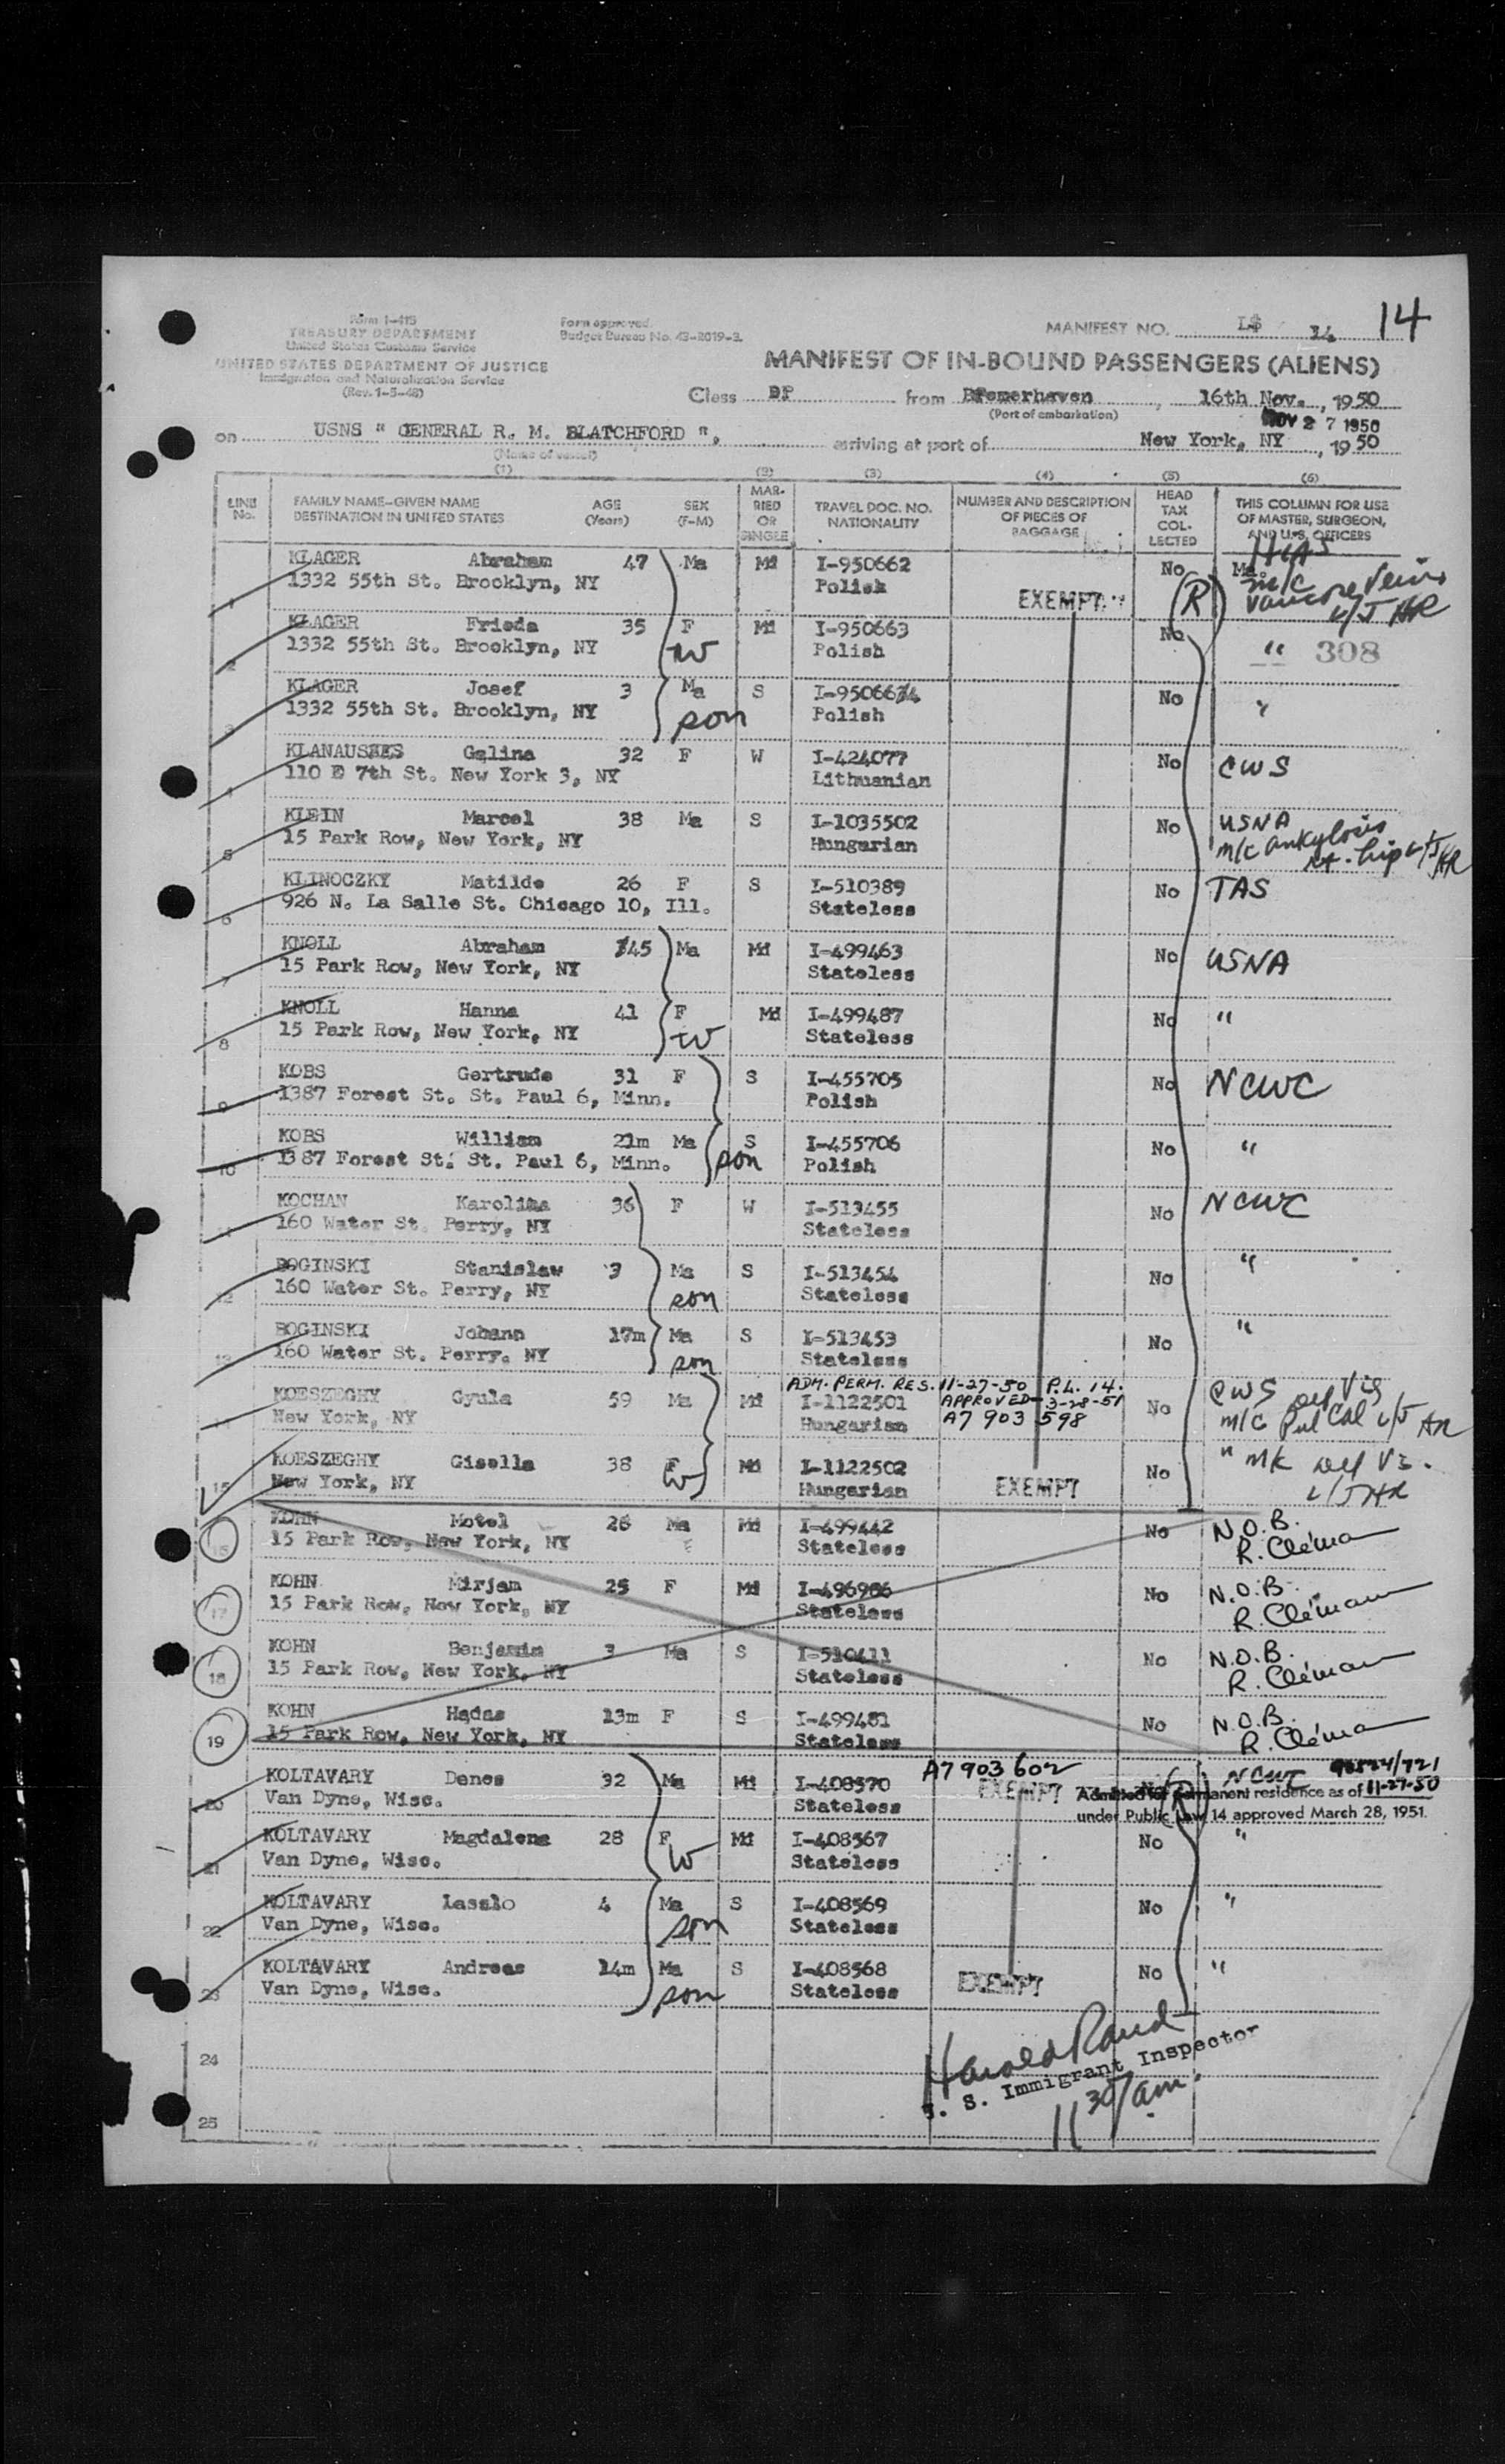 Form I-415
TREASURY DEPARTMENT
United States Customs Service
UNITED STATES DEPARTMENT OF JUSTICE
Immigration and Naturalization Service
(Rev. 1-5-48)
Form approved.
Budget Bureau No. 43-R019-3.
MANIFEST NO. 14 14
MANIFEST OF IN-BOUND PASSENGERS (ALIENS)
Class DP from Bremerhaven, 16th Nov., 1950
(Port of embarkation)
NOV 27 1950
on USNS " GENERAL R. M. BLATCHFORD ", arriving at port of New York, NY, 1950
(Name of vessel)
(1) (2) (3) (4) (5) (6)
LINE No. FAMILY NAME-GIVEN NAME DESTINATION IN UNITED STATES AGE (Years) SEX (F-M) MARRIED OR SINGLE TRAVEL DOC. NO. NATIONALITY NUMBER AND DESCRIPTION OF PIECES OF BAGGAGE HEAD TAX COLLECTED THIS COLUMN FOR USE OF MASTER, SURGEON, AND U.S. OFFICERS
HIAS
1 KLAGER Abraham 47 Ma Md I-950662 No m/c
1332 55th St. Brooklyn, NY Polish EXEMPT (R) Varicose Veins
L/J HR
2 KLAGER Frieda 35 F Md I-950663 No "
1332 55th St. Brooklyn, NY W Polish 308
3 KLAGER Josef 3 Ma S I-950664 No "
1332 55th St. Brooklyn, NY son Polish
4 Galina 32 F W I-424077 No CWS
110 E 7th St. New York 3, NY Lithuanian
5 KLEIN Marcel 38 Ma S I-1035502 No USNA
15 Park Row, New York, NY Hungarian m/c ankylosis
rt. hip L/J HR
6 KLINOCZKY Matilde 26 F S I-510389 No TAS
926 N. La Salle St. Chicago 10, Ill. Stateless
7 KNOLL Abraham 45 Ma Md I-499463 No USNA
15 Park Row, New York, NY Stateless
8 KNOLL Hanna 41 F Md I-499487 No "
15 Park Row, New York, NY W Stateless
9 KOBS Gertrude 31 F S I-455705 No NCWC
1387 Forest St. St. Paul 6, Minn. Polish
10 KOBS William 21m Ma S I-455706 No "
1387 Forest St. St. Paul 6, Minn. son Polish
11 KOCHAN Karolina 36 F W I-513455 No NCWC
160 Water St. Perry, NY Stateless
12 ROGINSKI Stanislaw 3 Ma S I-513454 No "
160 Water St. Perry, NY son Stateless
13 ROGINSKI Johann 17m Ma S I-513453 No "
160 Water St. Perry, NY son Stateless
ADM. PERM. RES. 11-27-50 P.L. 14.
14 KOESZEGHY Gyula 59 Ma Md I-1122501 APPROVED 3-28-51 No CWS def Vis
New York, NY Hungarian A7 903 598 m/c Pul Cal L/J HR
15 KOESZEGHY Gisella 38 F Md I-1122502 No " m/c def Vs.
New York, NY W Hungarian EXEMPT L/J HR
16 KOHN Motel 28 Ma Md I-499442 No N.O.B.
15 Park Row, New York, NY Stateless R. Cléman
17 KOHN Mirjam 25 F Md I-496986 No N.O.B.
15 Park Row, New York, NY Stateless R. Cléman
18 KOHN Benjamin 3 Ma S I-510411 No N.O.B.
15 Park Row, New York, NY Stateless R. Cléman
19 KOHN Hadas 13m F S I-499481 No N.O.B.
15 Park Row, New York, NY Stateless R. Cléman
A7 903 602
20 KOLTAVARY Denes 32 Ma Md I-408570 EXEMPT No (R) NCWC
Van Dyne, Wisc. Stateless
Admitted for permanent residence as of 11-27-50
under Public Law 14 approved March 28, 1951.
21 KOLTAVARY Magdalena 28 F Md I-408567 No "
Van Dyne, Wisc. W Stateless
22 KOLTAVARY Laszlo 4 Ma S I-408569 No "
Van Dyne, Wisc. son Stateless
23 KOLTAVARY Andreas 14m Ma S I-408568 No "
Van Dyne, Wisc. son Stateless EXEMPT
24
25
Harold Rand
U. S. Immigrant Inspector
11 30/am.